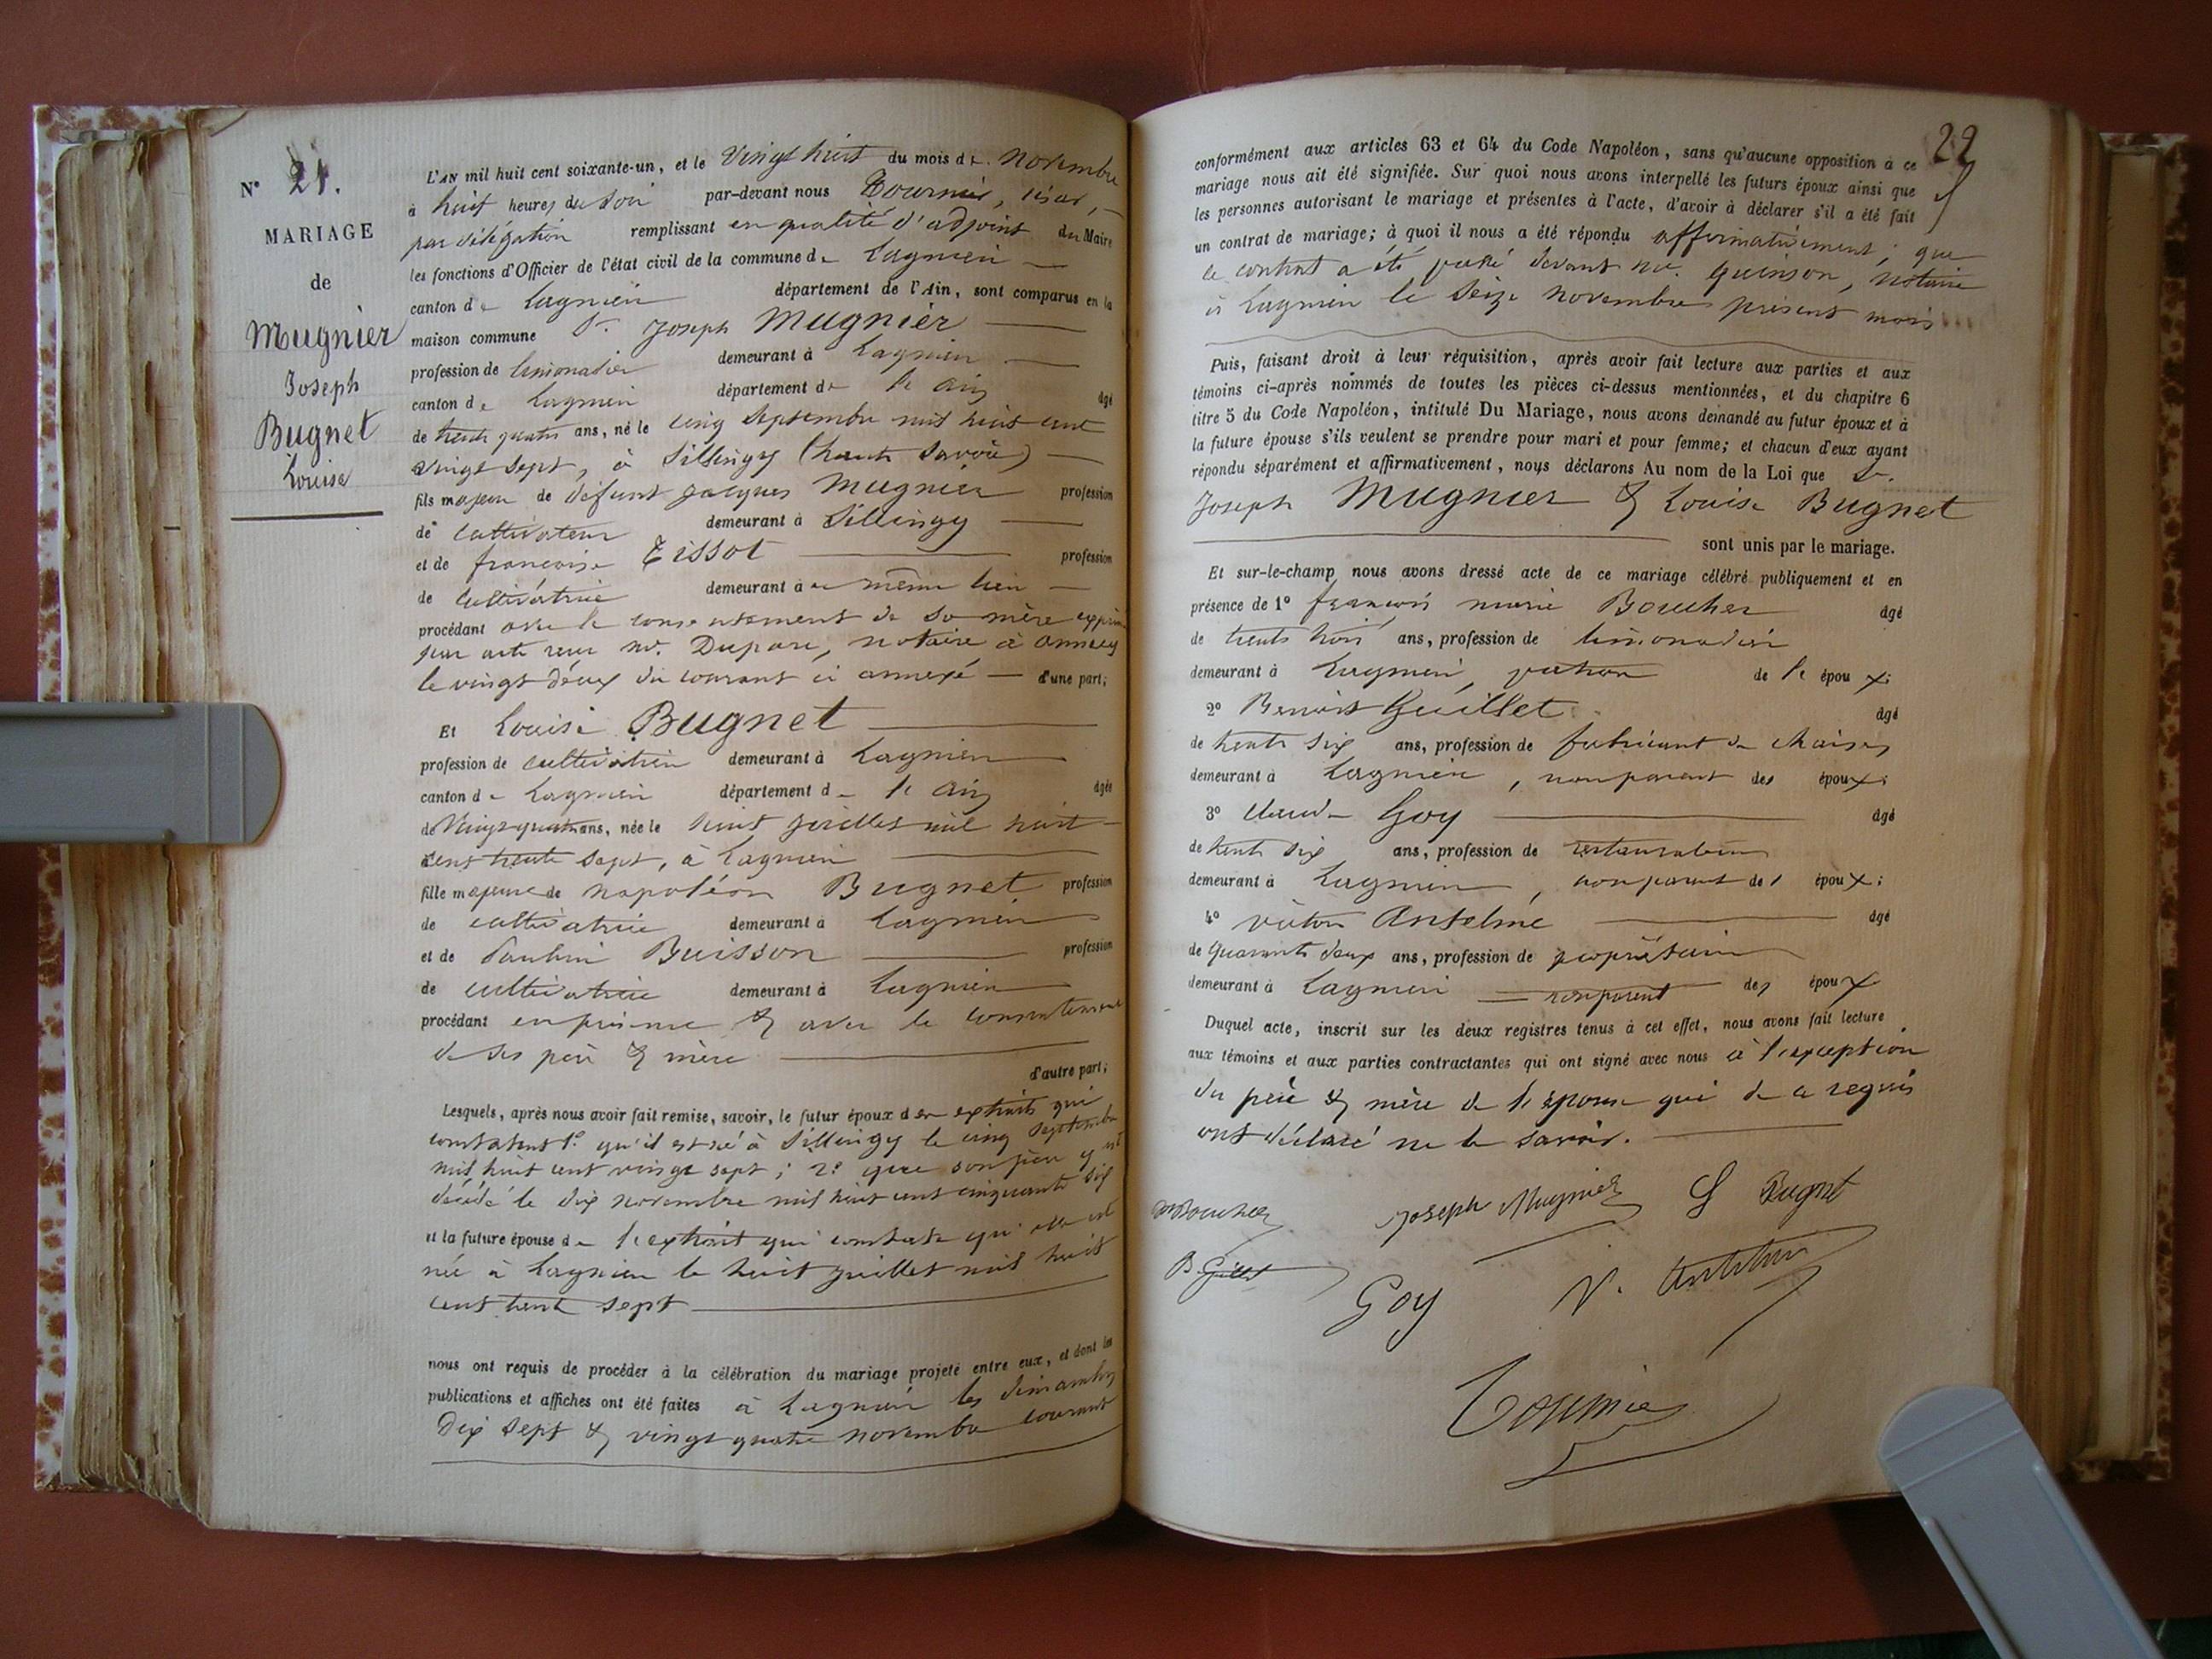 N° 21.
MARIAGE
de
Mugnier
Joseph
Bugnet
Louise
L'AN mil huit cent soixante-un, et le vingt huit du mois de novembre
à huit heures du soir par-devant nous Tournier, césar,
par délégation remplissant en qualité d'adjoint du Maire
les fonctions d'Officier de l'état civil de la commune de Lagnieu
canton de Lagnieu département de l'Ain, sont comparus en la
maison commune Sr. Joseph Mugnier
profession de limonadier demeurant à Lagnieu
canton de Lagnieu département de l'ain âgé
de trente quatre ans, né le cinq septembre mil huit cent
vingt sept, à Sillingy (haute Savoie)
fils majeur de défunt Jacques Mugnier profession
de cultivateur demeurant à Sillingy
et de françoise Tissot profession
de cultivatrice demeurant à au même lieu
procédant avec le consentement de sa mère exprimé
par acte reçu me. Dupare, notaire à annecy
le vingt deux du courant ci annexé d'une part;
Et Louise Bugnet
profession de cultivatrice demeurant à Lagnieu
canton de Lagnieu département de l'ain âgée
de vingt quatre ans, née le huit juillet mil huit
cent trente sept, à Lagnieu
fille majeure de napoléon Bugnet profession
de cultivatrice demeurant à Lagnieu
et de Paubin Buisson profession
de cultivatrice demeurant à Lagnieu
procédant en présence & avec le consentement
de ses père & mère
d'autre part;
Lesquels, après nous avoir fait remise, savoir, le futur époux des extraits qui
constatent 1° qu'il est né à Sillingy le cinq septembre
mil huit cent vingt sept; 2° que son père y est
décédé le dix novembre mil huit cent cinquante six
et la future épouse de l'extrait qui constate qu'elle est
née à Lagnieu le huit juillet mil huit
cent trente sept
nous ont requis de procéder à la célébration du mariage projeté entre eux, et dont les
publications et affiches ont été faites à Lagnieu les dimanches
dix sept & vingt quatre novembre courant
22
conformément aux articles 63 et 64 du Code Napoléon, sans qu'aucune opposition à ce
mariage nous ait été signifiée. Sur quoi nous avons interpellé les futurs époux ainsi que
les personnes autorisant le mariage et présentes à l'acte, d'avoir à déclarer s'il a été fait
un contrat de mariage; à quoi il nous a été répondu affirmativement; que
le contrat a été passé devant me. Quinson, notaire
à Lagnieu le seize novembre présent mois
Puis, faisant droit à leur réquisition, après avoir fait lecture aux parties et aux
témoins ci-après nommés de toutes les pièces ci-dessus mentionnées, et du chapitre 6
titre 5 du Code Napoléon, intitulé Du Mariage, nous avons demandé au futur époux et à
la future épouse s'ils veulent se prendre pour mari et pour femme; et chacun d'eux ayant
répondu séparément et affirmativement, nous déclarons Au nom de la Loi que Sr.
Joseph Mugnier & Louise Bugnet
sont unis par le mariage.
Et sur-le-champ nous avons dressé acte de ce mariage célébré publiquement et en
présence de 1° françois marie Boucher âgé
de trente trois ans, profession de limonadier
demeurant à Lagnieu, patron de l'époux;
2° Benoit Guillet âgé
de trente six ans, profession de fabricant de chaises
demeurant à Lagnieu, non parent des époux;
3° claude Goy âgé
de trente six ans, profession de restaurateur
demeurant à Lagnieu, non parent des époux;
4° victor Anselme âgé
de quarante deux ans, profession de propriétaire
demeurant à Lagnieu non parent des époux
Duquel acte, inscrit sur les deux registres tenus à cet effet, nous avons fait lecture
aux témoins et aux parties contractantes qui ont signé avec nous à l'exception
du père & mère de l'épouse qui de ce requis
ont déclaré ne le savoir.
Boucher Joseph Mugnier L Bugnet
B. Guillet Goy V. Anselme
Tournier